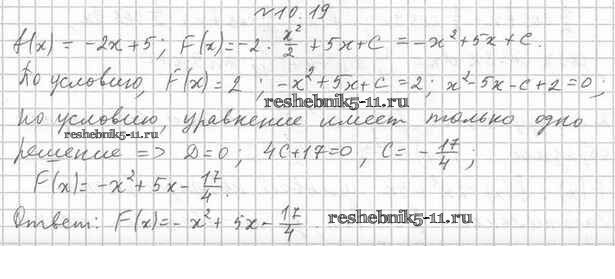 №10.19
f(x) = -2x+5; F(x) = -2 · x²/2 + 5x + C = -x² + 5x + C.
По условию, F(x) = 2; -x² + 5x + C = 2; x² - 5x - C + 2 = 0;
reshebnik5-11.ru
По условию, уравнение имеет только одно
reshebnik5-11.ru
решение => D=0; 4C+17=0, C = -17/4;
F(x) = -x² + 5x - 17/4.
Ответ: F(x) = -x² + 5x - 17/4.
reshebnik5-11.ru